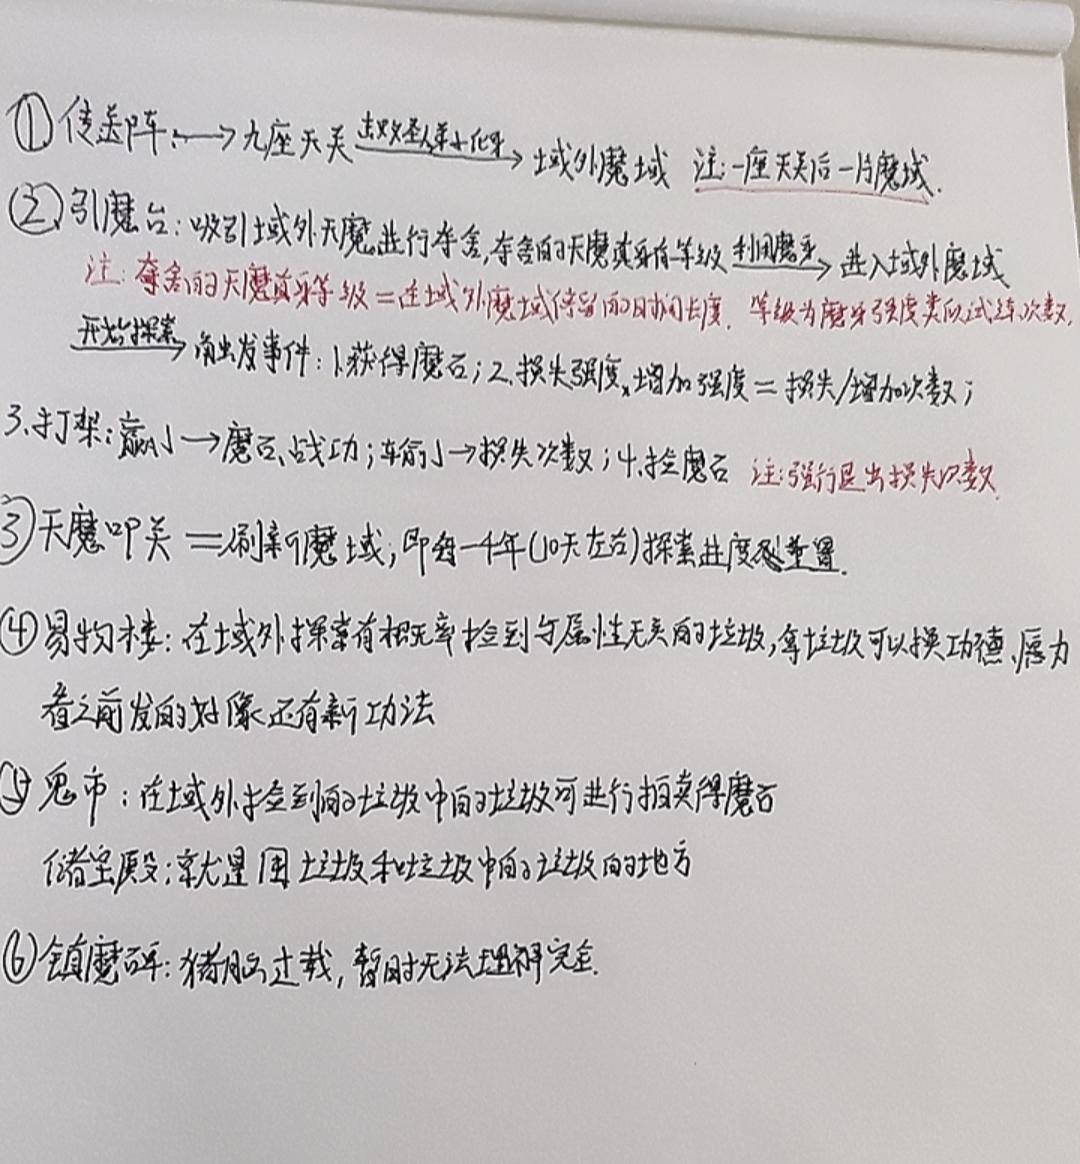 ①传送阵:⟶九座天关 击败圣人第十化身⟶域外魔域 注:一座天关后一片魔域.
②引魔台:吸引域外天魔进行夺舍,夺舍的天魔真身有等级 利用魔身⟶进入域外魔域
注:夺舍的天魔真身等级=在域外魔域停留的时间长度.等级为魔身强度类似试练次数.
开始探索⟶触发事件:1.获得魔石;2.损失强度、增加强度=损失/增加次数;
3.打架:赢小→魔石、战功;输小→损失次数;4.捡魔石 注:强行退出损失次数.
③天魔叩关=刷新魔域,即每一千年(10天左右)探索进度重置.
④易物楼:在域外探索有概率捡到与属性无关的垃圾,拿垃圾可以换功德、愿力
看之前发的好像还有新功法
⑤鬼市:在域外捡到的垃圾中的垃圾可进行拍卖得魔石
储宝殿:就是囤垃圾和垃圾中的垃圾的地方
⑥镇魔碑:猪脑过载,暂时无法理解完全.